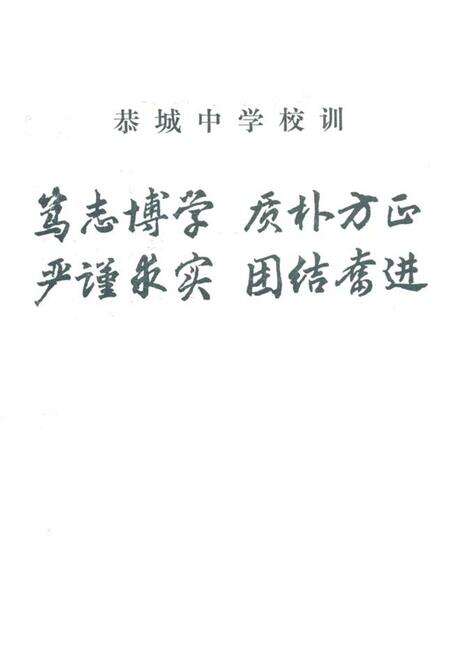 恭城中学校训
笃志博学 质朴方正
严谨求实 团结奋进